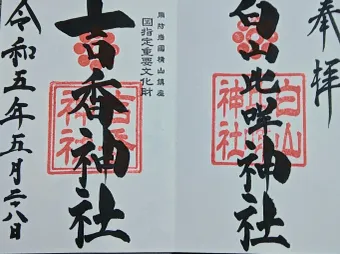 奉拝
白山比咩神社
白山
神社
周防岩国横山鎮座
国指定重要文化財
吉香神社
吉香
神社
令和五年五月二十八日